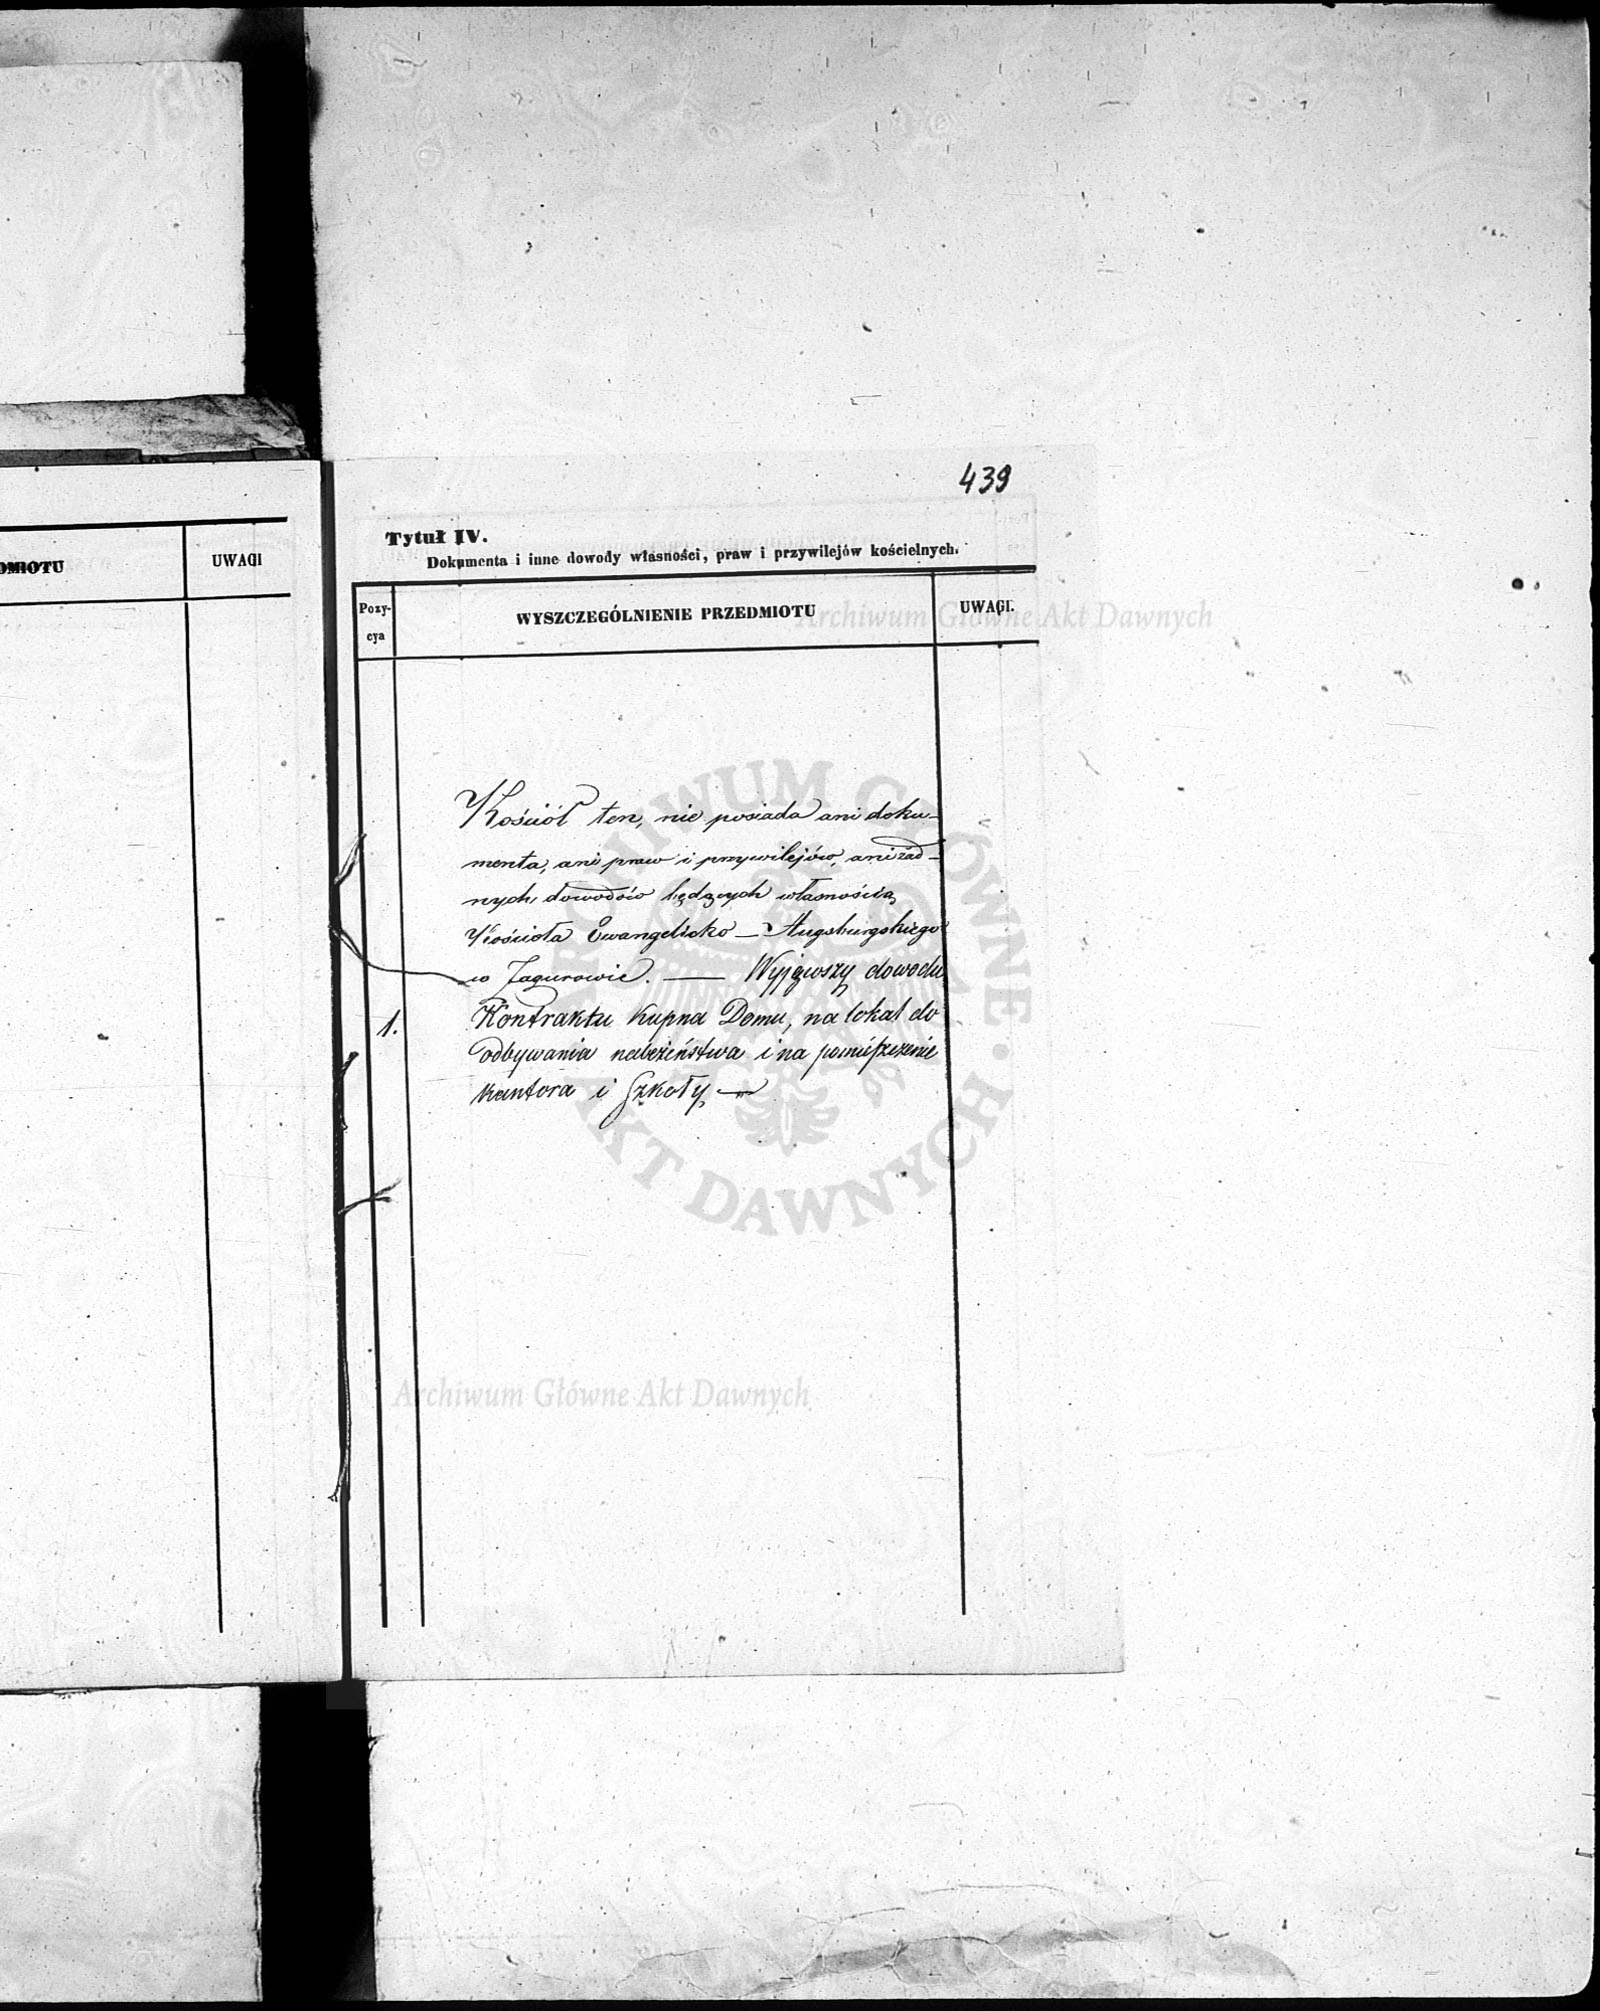 439
OMIOTU
UWAGI
Tytuł IV.
Dokumenta i inne dowody własności, praw i przywilejów kościelnych.
Pozy-
cya
WYSZCZEGÓLNIENIE PRZEDMIOTU
UWAGI.
Archiwum Główne Akt Dawnych
Kościół ten, nie posiada ani doku-
menta, ani praw i przywilejów, ani żad-
nych dowodów będących własnością
Kościoła Ewangelicko – Augsburskiego
w . — Wyjąwszy dowodu
1. Kontraktu kupna Domu, na lokal do
odbywania nabożeństwa i na pomieszczenie
kantora i Szkoły —
ARCHIWUM GŁÓWNE
AKT DAWNYCH
Archiwum Główne Akt Dawnych